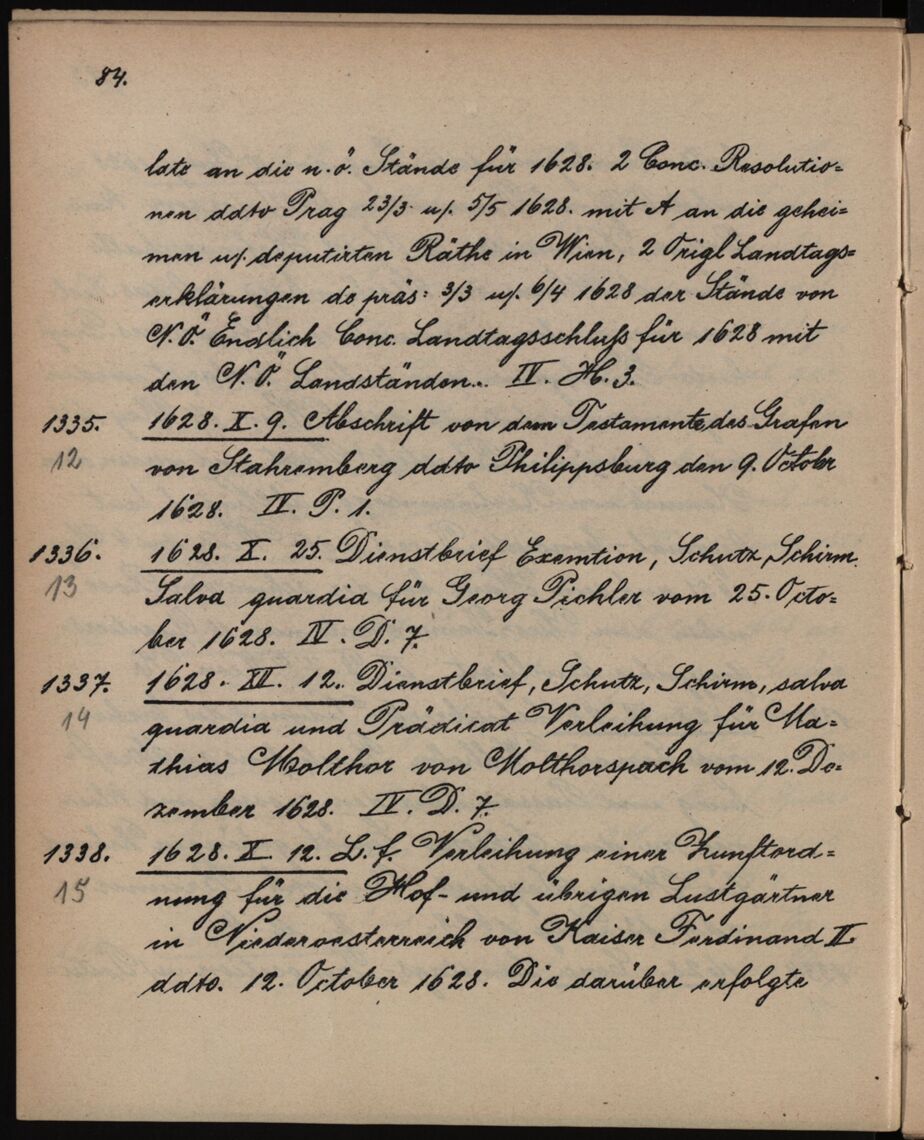 84.
late an die n. ö. Stände für 1628. 2 Conc. Resolutio=
nen ddto Prag 23/3 u/. 5/5 1628. mit A an die gehei=
men u/. deputirten Räthe in Wien, 2 Origl Landtags=
erklärungen de präs: 3/3 u/. 6/4 1628 der Stände von
N. Ö. Endlich Conc. Landtagsschluß für 1628 mit
den N. Ö. Landständen.. IV. H. 3.
1335. 1628. X. 9. Abschrift von dem Testamente des Grafen
12 von Stahremberg ddto Philippsburg den 9. Octobr
1628. IV. P. 1.
1336. 1628. X. 25. Dienstbrief Exemtion, Schutz, Schirm.
13 Salva guardia für Georg Pichler vom 25. Octo=
ber 1628. IV. D. 7.
1337. 1628. XII. 12. Dienstbrief, Schutz, Schirm, salva
14 guardia und Prädicat Verleihung für Ma=
thias Molthor von Molthorspach vom 12. De=
zember 1628. IV. D. 7.
1338. 1628. X. 12. L. f. Verleihung einer Zunftord=
15 nung für die Hof- und übrigen Lustgärtner
in Niederoesterreich von Kaiser Ferdinand II
ddto. 12. October 1628. Die darüber erfolgte